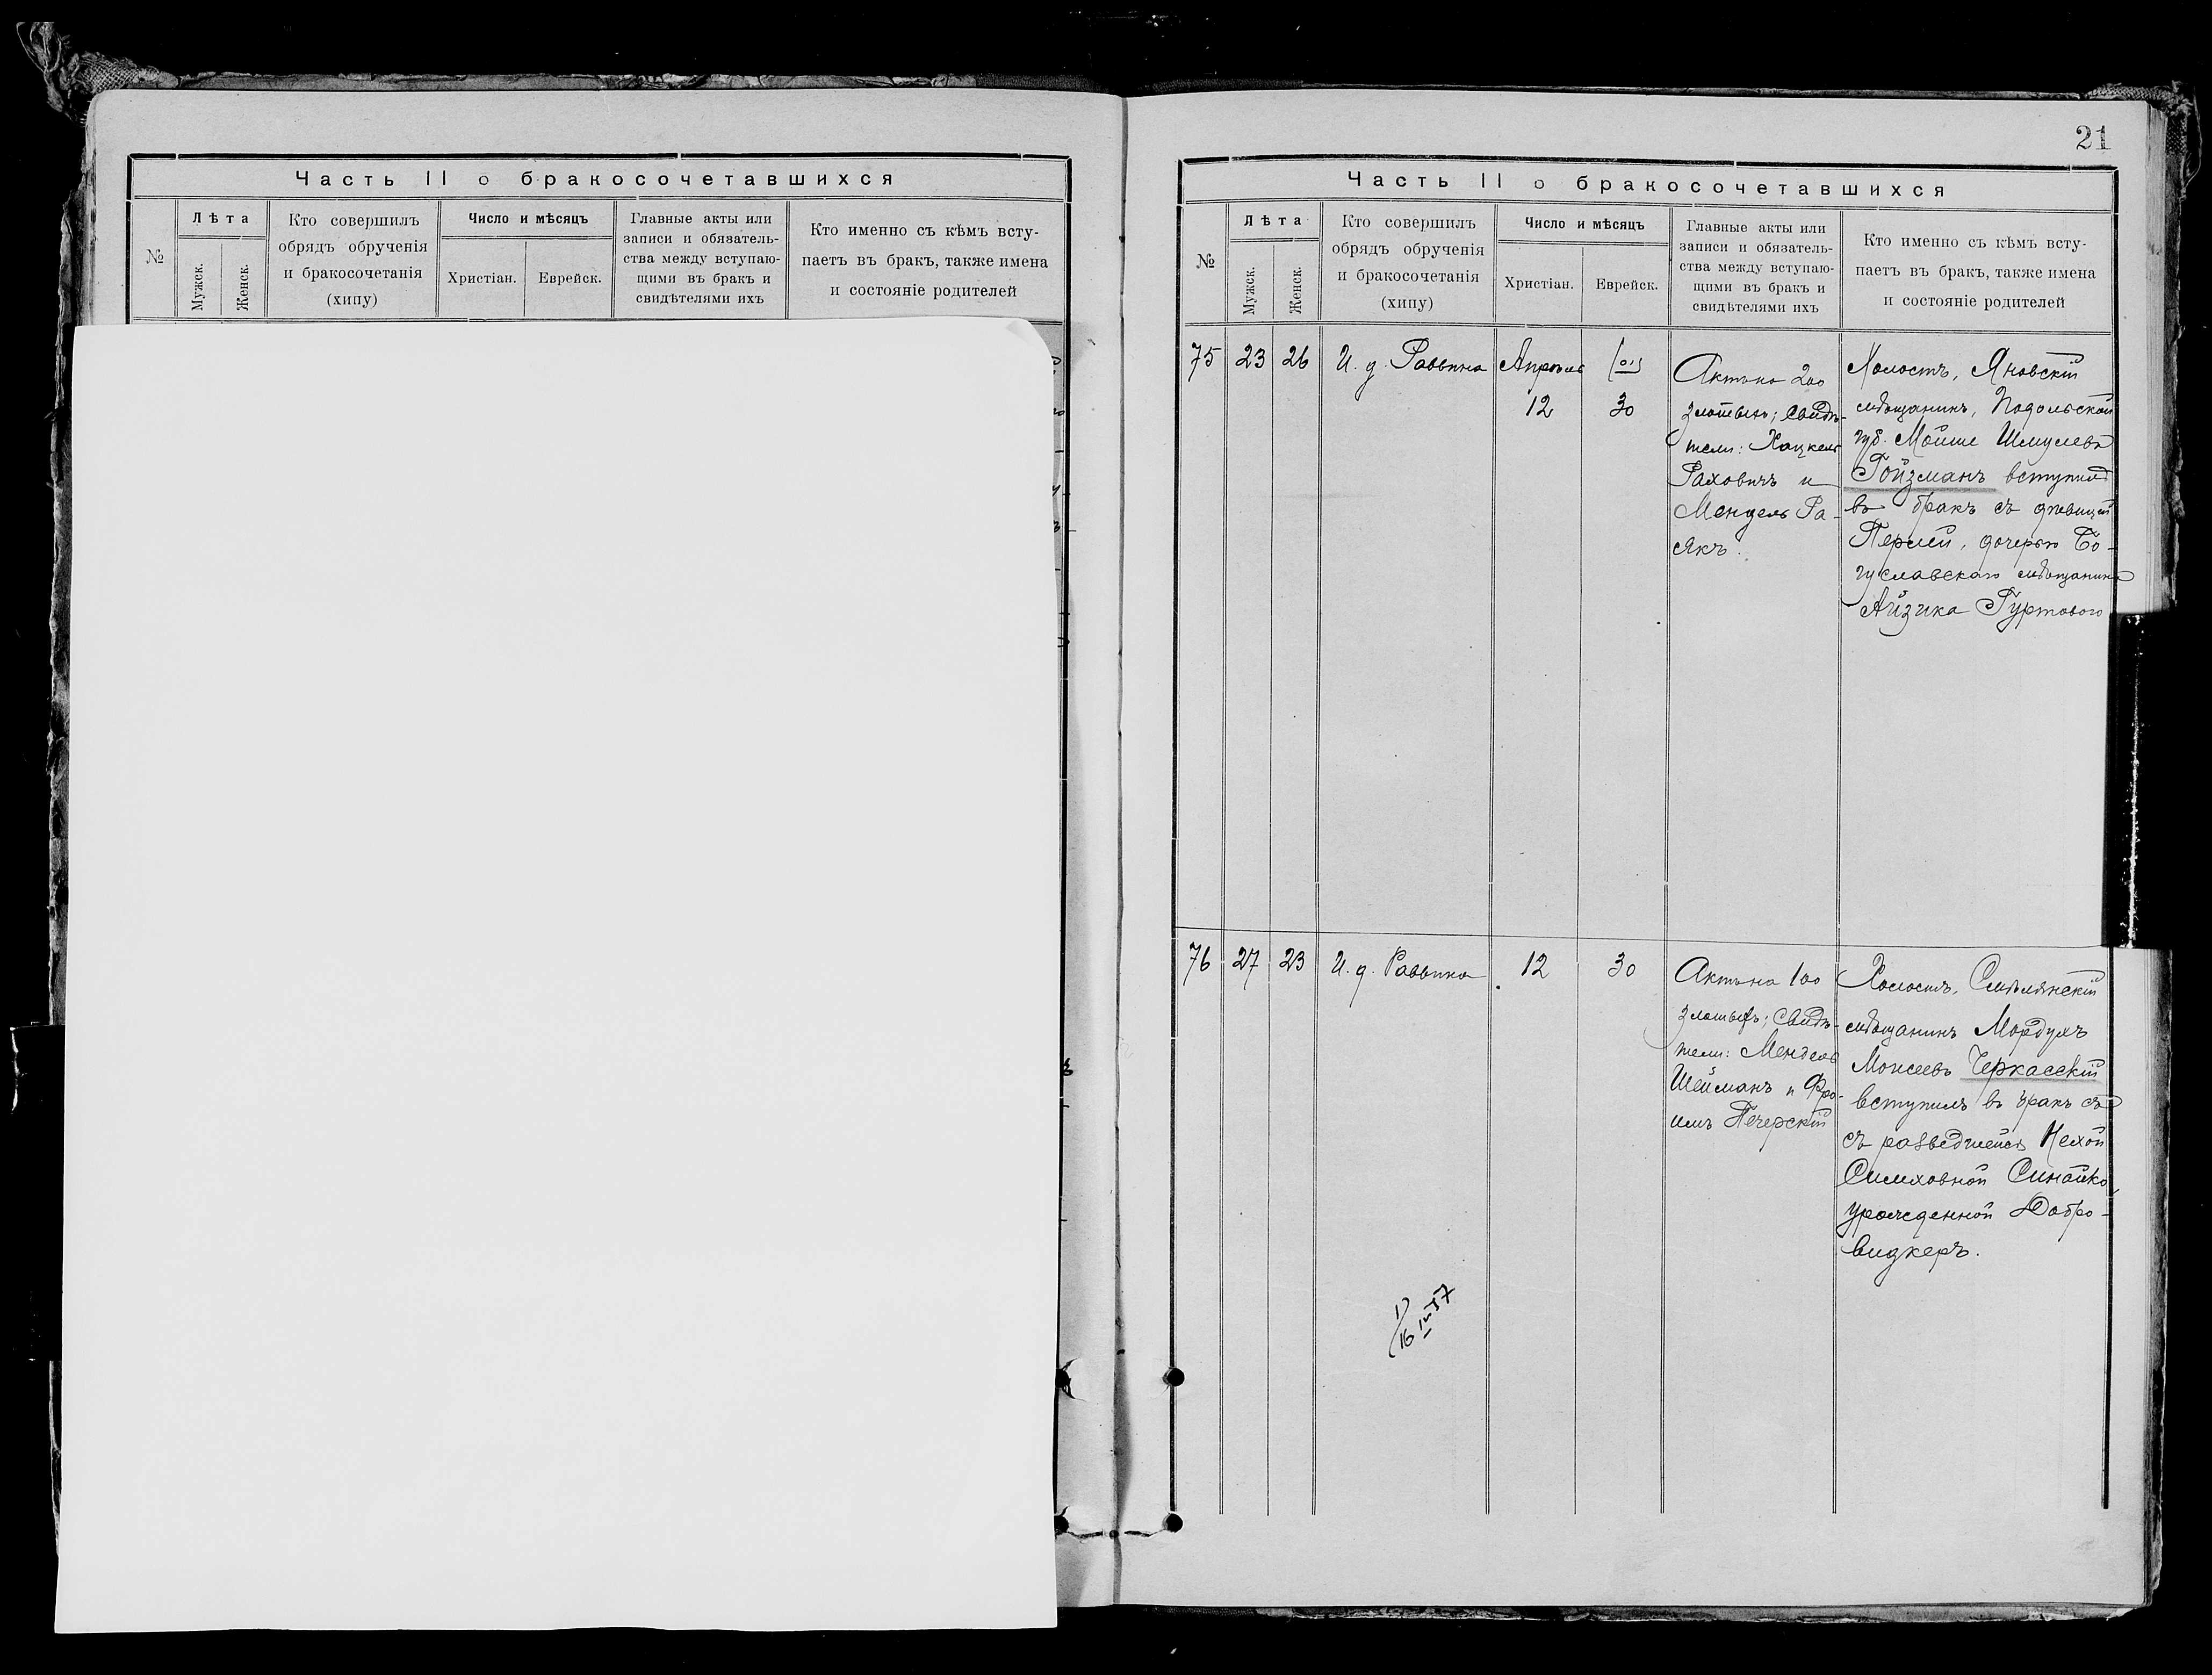 21
Часть II о бракосочетавшихся
№
Лѣта
Мужск.
Женск.
Кто совершилъ
обрядъ обрученія
и бракосочетанія
(хипу)
Число и мѣсяцъ
Христіан.
Еврейск.
Главные акты или
записи и обязатель-
ства между вступаю-
щими въ бракъ и
свидѣтелями ихъ
Кто именно съ кѣмъ всту-
паетъ въ бракъ, также имена
и состояніе родителей
Часть II о бракосочетавшихся
№
Лѣта
Мужск.
Женск.
Кто совершилъ
обрядъ обрученія
и бракосочетанія
(хипу)
Число и мѣсяцъ
Христіан.
Еврейск.
Главные акты или
записи и обязатель-
ства между вступаю-
щими въ бракъ и
свидѣтелями ихъ
Кто именно съ кѣмъ всту-
паетъ въ бракъ, также имена
и состояніе родителей
75
23
26
И. д. Раввина
Апрѣль
12
30
Актъ на 200
злотыхъ; свидѣ-
тели: Хацкель
Раховичъ и
Мендель Ра-
сякъ.
Холостъ, Яновскій
мѣщанинъ, Подольской
губ. Мойше Шмулевъ
Ройзманъ вступилъ
въ бракъ съ дѣвицей
Перлей, дочерью Бо-
гуславскаго мѣщанина
Айзика Гуртового
76
27
23
И. д. Раввина
12
30
Актъ на 100
злотыхъ; свидѣ-
тели: Мендель
Шейманъ и Фро-
имъ Печерскій
Холостъ, Смѣлянскій
мѣщанинъ Мордухъ
Моисеевъ Черкасскій
вступилъ въ бракъ съ
съ разведшейся Нехой
Симховной Синайко,
урожденной Добро-
видкеръ.